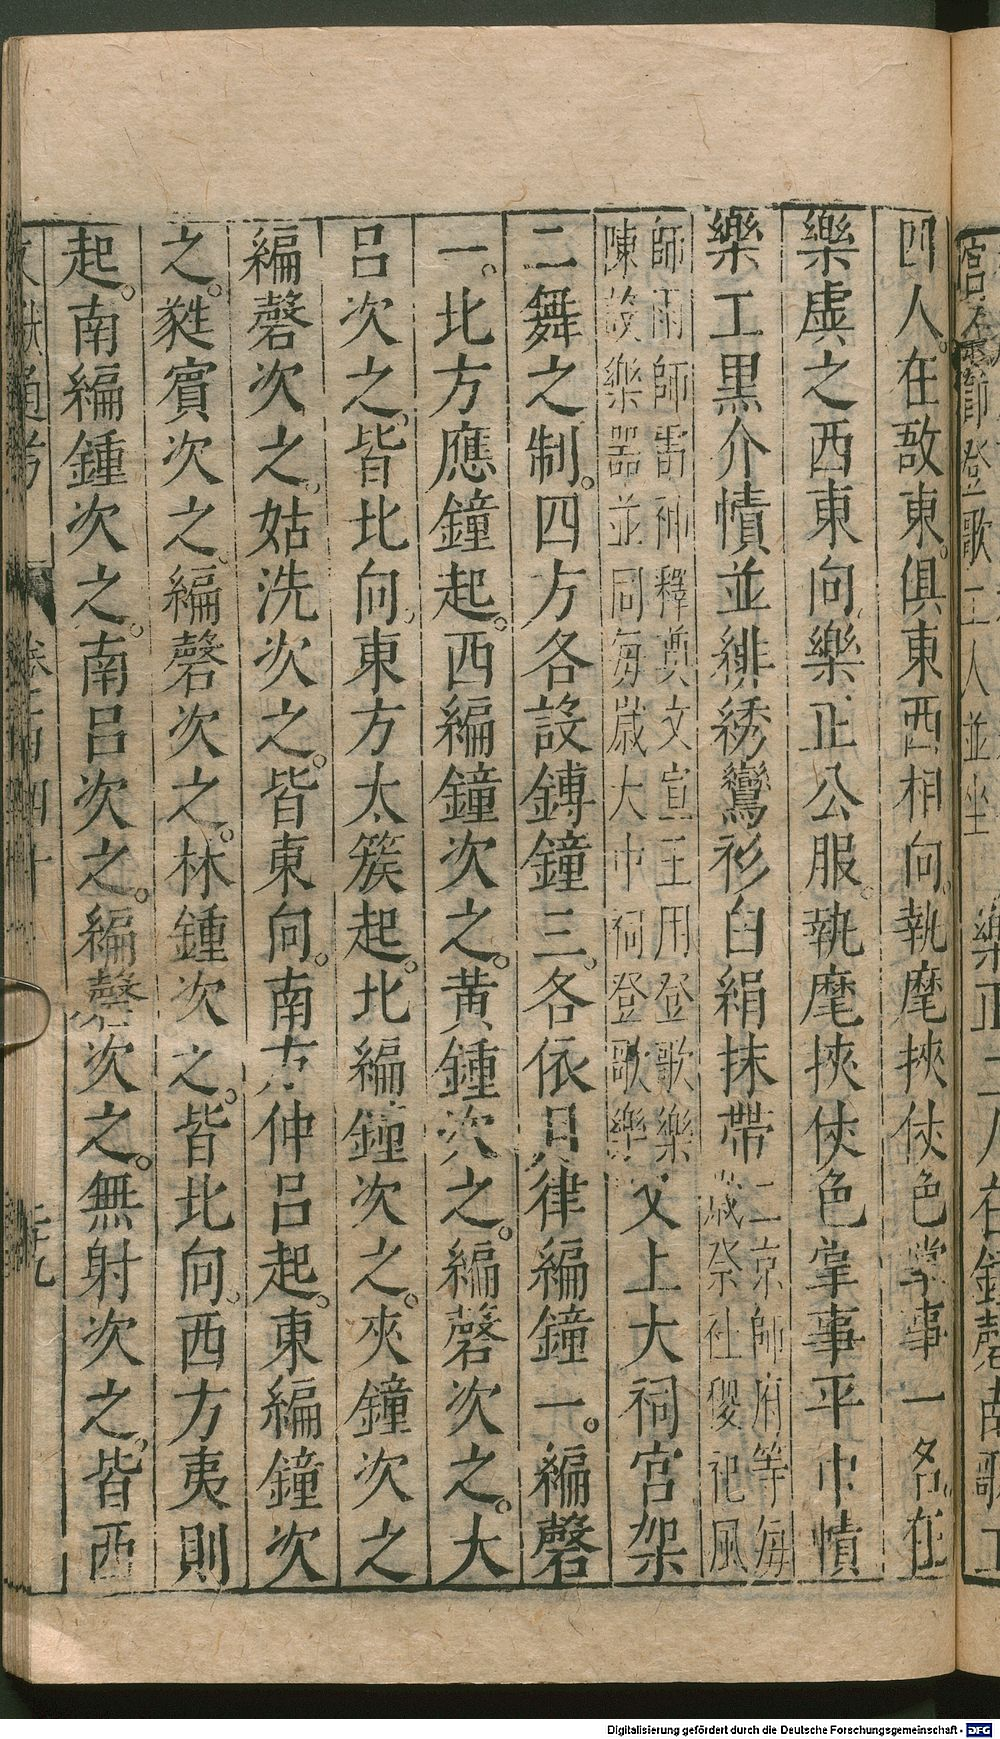 四人。在敔東。俱東西相向。執麾挾仗色掌事一名。在
樂虡之西東向。樂正公服。執麾挾仗色掌事平巾幘
樂工黑介幘並緋綉鸞衫白絹抹帶
三京師府等每
歲祭社稷祀風
師雨師雷神釋奠文宣王用登歌樂
陳設樂器並同每歲大中祠登歌樂
又上大祠宮架
二舞之制。四方各設鎛鐘三。各依月律編鐘一。編磬
一。北方應鐘起。西編鐘次之。黃鍾次之。編磬次之。大
呂次之。皆北向。東方太簇起。北編鐘次之。夾鐘次之
編磬次之。姑洗次之。皆東向。南方仲呂起。東編鐘次
之。蕤賓次之。編磬次之。林鍾次之。皆北向。西方夷則
起。南編鍾次之。南呂次之。編磬次之。無射次之。皆西
文獻通考
卷一百四十
Digitalisierung gefördert durch die Deutsche Forschungsgemeinschaft - DFG